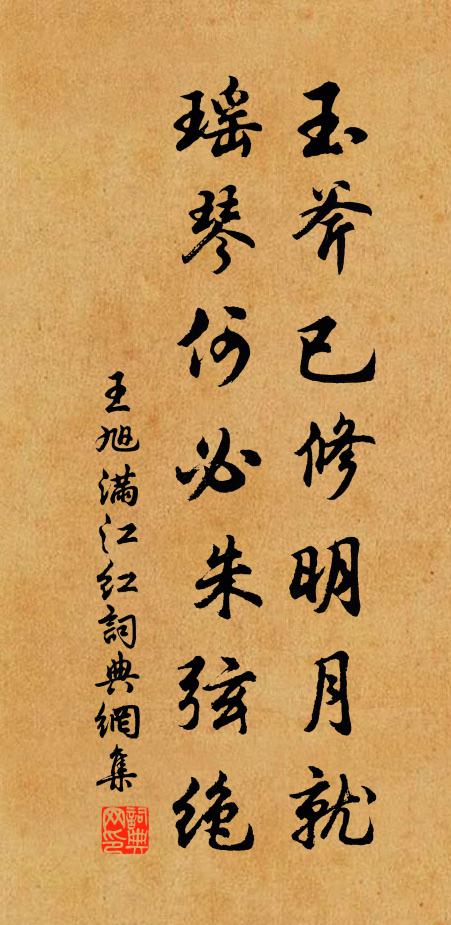 玉斧已修明月就
瑶琴何必朱弦绝
王旭满江红詞典網集
詞典網印